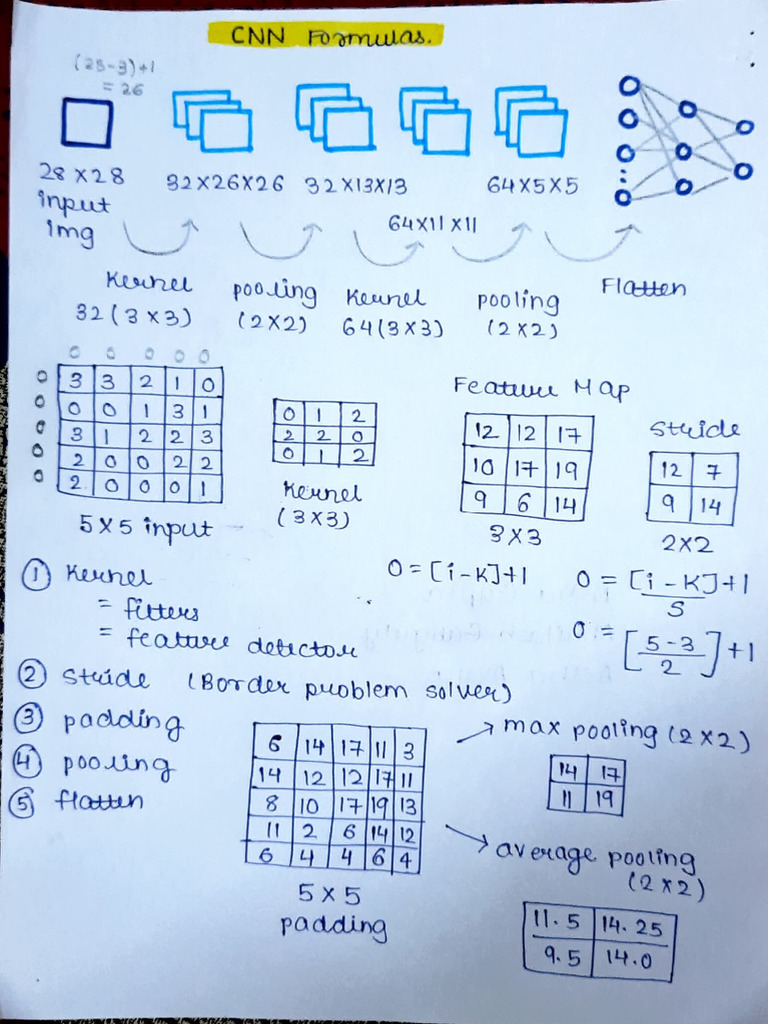 CNN Formulas.
(28-3)+1
= 26
28 X 28
input
img
32 X 26 X 26
32 X 13 X 13
64 X 11 X 11
64 X 5 X 5
Kernel
32 (3 X 3)
pooling
(2 X 2)
Kernel
64 (3 X 3)
pooling
(2 X 2)
Flatten
0 0 0 0 0
0 3 3 2 1 0
0 0 0 1 3 1
0 3 1 2 2 3
0 2 0 0 2 2
0 2 0 0 0 1
5 X 5 input
0 1 2
2 2 0
0 1 2
Kernel
(3 X 3)
Feature Map
12 12 17
10 17 19
9 6 14
3 X 3
Stride
12 7
9 14
2 X 2
O = [i - K] + 1
O = [i - K] + 1
S
O = [5 - 3] + 1
2
① Kernel
= fitters
= feature detector
② Stride (Border problem solver)
③ padding
④ pooling
⑤ flatten
6 14 17 11 3
14 12 12 17 11
8 10 17 19 13
11 2 6 14 12
6 4 4 6 4
5 X 5
padding
→ max pooling (2 X 2)
14 17
11 19
→ average pooling
(2 X 2)
11.5 14.25
9.5 14.0